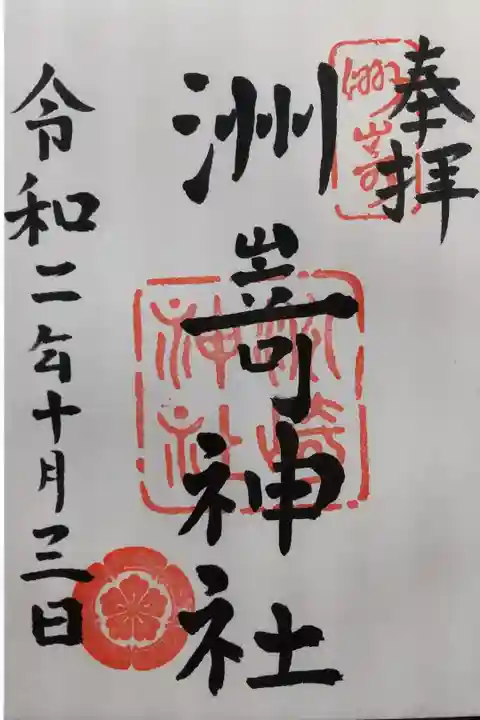 奉拝
洲嵜神社
洲崎
神社
令和二年十月三日